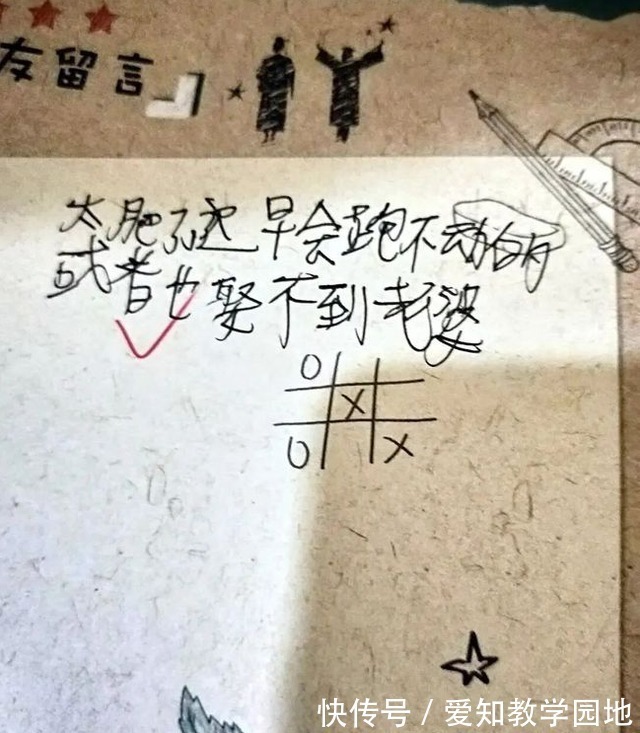 友留言
太肥了迟早会跑不动
或者也娶不到老婆
O
X
O X
快传号 / 爱知教学园地